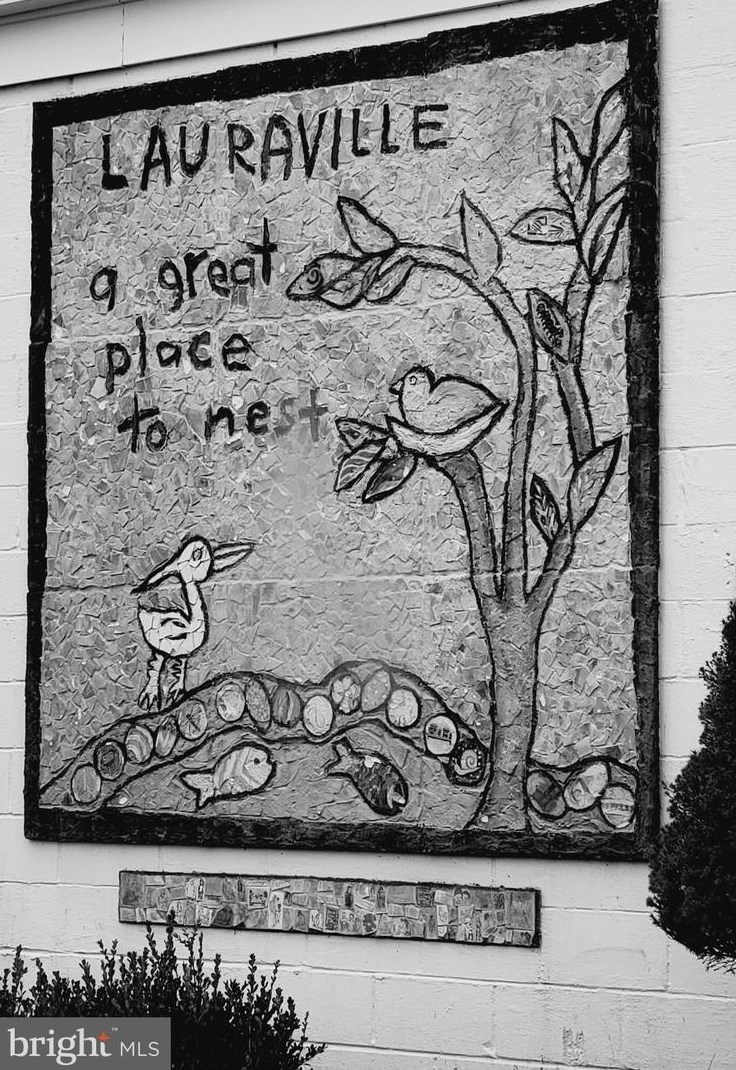 LAURAVILLE
a great
place
to nest
bright™ MLS